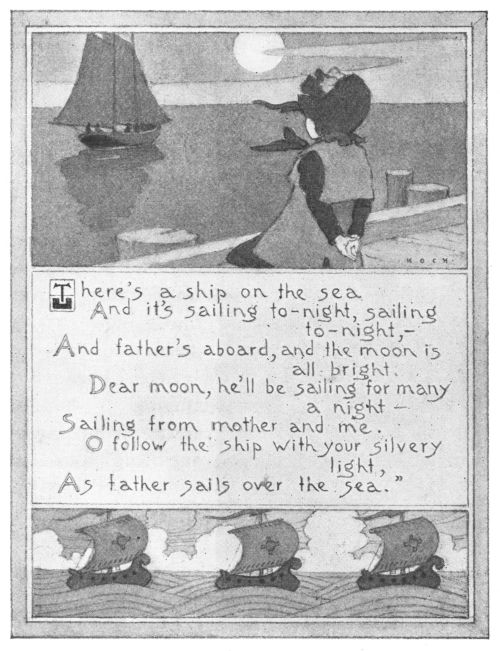 KOCH
There's a ship on the sea
And it's sailing to-night, sailing
to-night,-
And father's aboard, and the moon is
all bright.
Dear moon, he'll be sailing for many
a night —
Sailing from mother and me.
O follow the ship with your silvery
light,
As father sails over the sea."